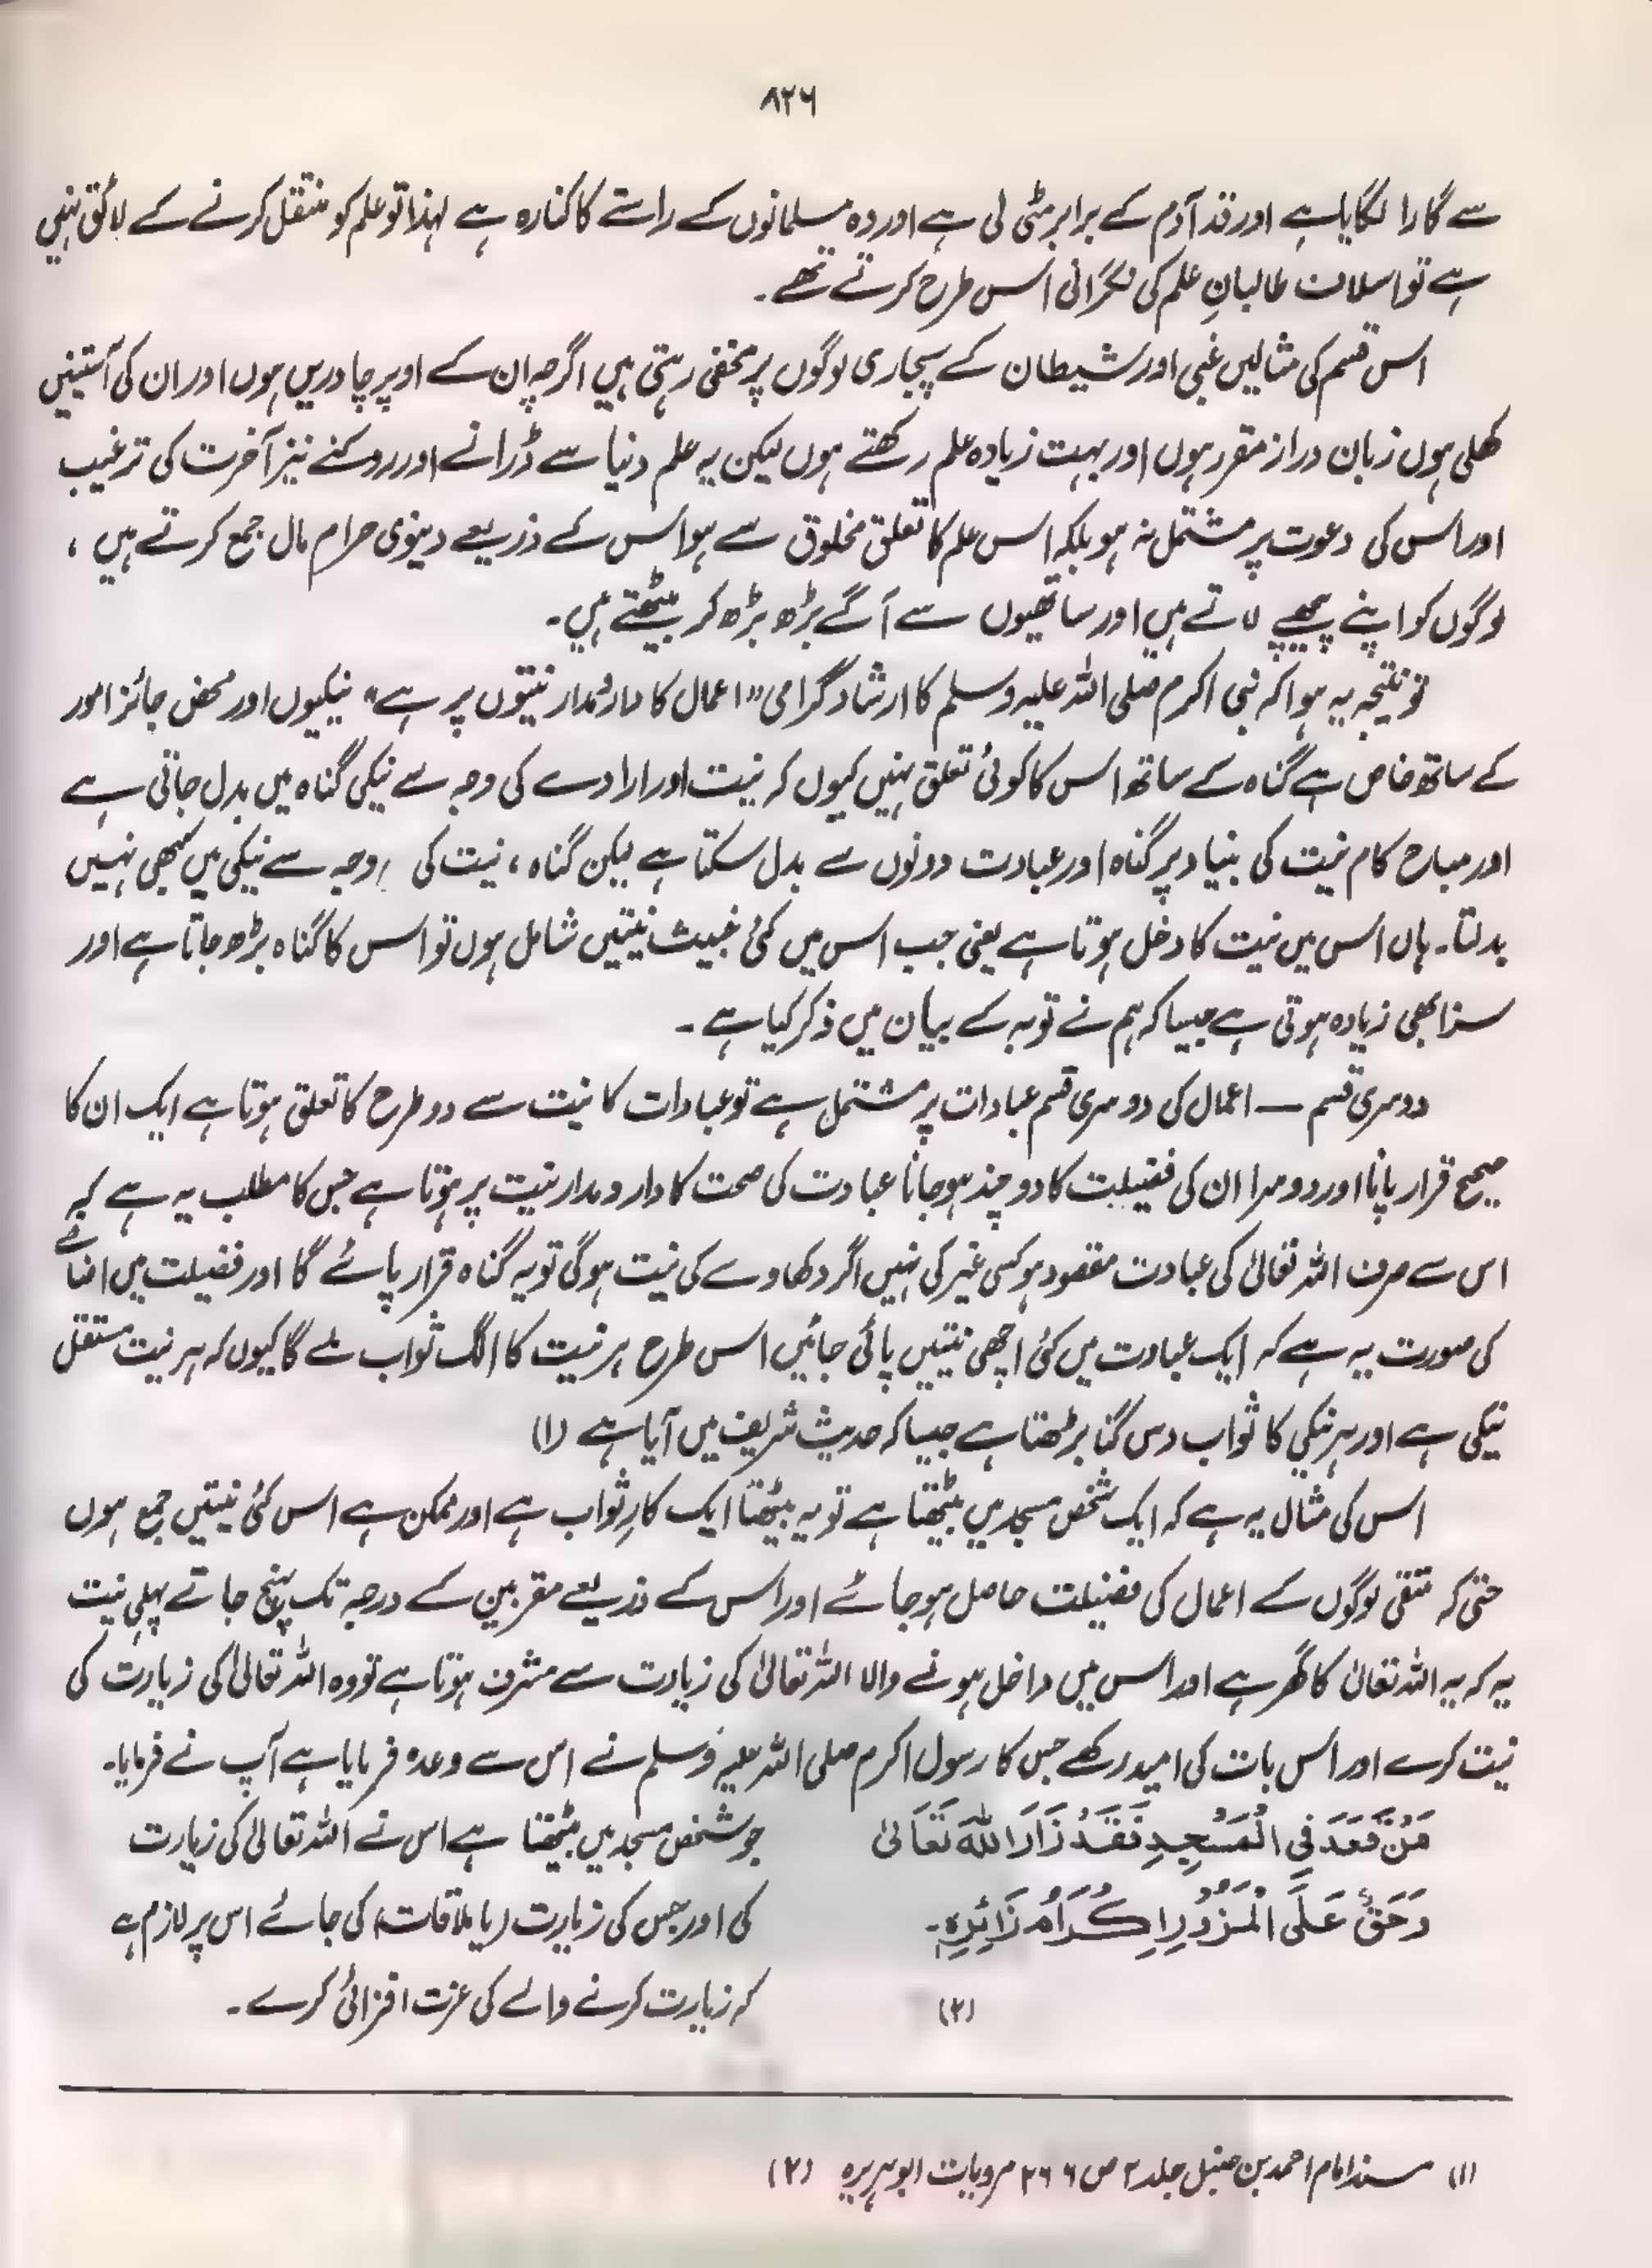 ۸۲۶
سے گارا لگایا ہے اور قد آدم کے برابر مٹی لی ہے اور وہ مسلمانوں کے راستے کا کنارہ ہے لہذا تو علم کو منتقل کرنے کے لائق نہیں
ہے تو اسلاف طالبانِ علم کی نگرانی اس طرح کرتے تھے۔
اس قسم کی مثالیں غبی اور شیطان کے پجاری لوگوں پر مخفی رہتی ہیں اگرچہ ان کے اوپر چادریں ہوں اور ان کی آستینیں
کھلی ہوں زبان دراز مقرر ہوں اور بہت زیادہ علم رکھتے ہوں لیکن یہ علم دنیا سے ڈرانے اور روکنے نیز آخرت کی ترغیب
اور اس کی دعوت پر مشتمل نہ ہو بلکہ اس علم کا تعلق مخلوق سے ہو اس کے ذریعے دینوی حرام مال جمع کرتے ہیں ،
لوگوں کو اپنے پیچھے لاتے ہیں اور ساتھیوں سے آگے بڑھ بڑھ کر بیٹھتے ہیں۔
تو نتیجہ یہ ہوا کہ نبی اکرم صلی اللہ علیہ وسلم کا ارشاد گرامی "اعمال کا دارومدار نیتوں پر ہے" نیکیوں اور محض جائز امور
کے ساتھ خاص ہے گناہ کے ساتھ اس کا کوئی تعلق نہیں کیوں کہ نیت اور ارادے کی وجہ سے نیکی گناہ میں بدل جاتی ہے
اور مباح کام نیت کی بنیاد پر گناہ اور عبادت دونوں سے بدل سکتا ہے لیکن گناہ ، نیت کی وجہ سے نیکی میں کبھی نہیں
بدلتا۔ ہاں اس میں نیت کا دخل ہوتا ہے یعنی جب اس میں کئی خبیث نیتیں شامل ہوں تو اس کا گناہ بڑھ جاتا ہے اور
سزا بھی زیادہ ہوتی ہے جیسا کہ ہم نے توبہ کے بیان میں ذکر کیا ہے ۔
دوسری قسم — اعمال کی دوسری قسم عبادات پر مشتمل ہے تو عبادات کا نیت سے دو طرح کا تعلق ہوتا ہے ایک ان کا
صحیح قرار پانا اور دوسرا ان کی فضیلت کا دوچند ہوجانا عبادت کی صحت کا دارومدار نیت پر ہوتا ہے جس کا مطلب یہ ہے کہ
اس سے صرف اللہ تعالیٰ کی عبادت مقصود ہو کسی غیر کی نہیں اگر دکھاوے کی نیت ہوگی تو یہ گناہ قرار پائے گا اور فضیلت میں اضافے
کی صورت یہ ہے کہ ایک عبادت میں کئی اچھی نیتیں پائی جائیں اس طرح ہر نیت کا الگ ثواب ملے گا کیوں کہ ہر نیت مستقل
نیکی ہے اور ہر نیکی کا ثواب دس گنا بڑھتا ہے جیسا کہ حدیث شریف میں آیا ہے (۱)
اس کی مثال یہ ہے کہ ایک شخص مسجد میں بیٹھتا ہے تو یہ بیٹھنا ایک کارِ ثواب ہے اور ممکن ہے اس کئی نیتیں جمع ہوں
حتیٰ کہ متقی لوگوں کے اعمال کی فضیلت حاصل ہوجائے اور اس کے ذریعے مقربین کے درجہ تک پہنچ جاتے پہلی نیت
یہ کہ یہ اللہ تعالیٰ کا گھر ہے اور اس میں داخل ہونے والا اللہ تعالیٰ کی زیارت سے مشرف ہوتا ہے تو وہ اللہ تعالیٰ کی زیارت کی
نیت کرے اور اس بات کی امید رکھے جس کا رسول اکرم صلی اللہ علیہ وسلم نے اس سے وعدہ فرمایا ہے آپ نے فرمایا۔
مَنْ قَعَدَ فِي الْمَسْجِدِ فَقَدْ زَارَ اللّٰهَ تَعَالٰى
وَحَقٌّ عَلَى الْمَزُوْرِ اِكْرَامُ زَائِرِهٖ۔
(۲)
جو شخص مسجد میں بیٹھتا ہے اس نے اللہ تعالیٰ کی زیارت
کی اور جس کی زیارت (یا ملاقات) کی جائے اس پر لازم ہے
کہ زیارت کرنے والے کی عزت افزائی کرے ۔
(۱) مسند امام احمد بن حنبل جلد ۲ ص ۲۶۶ مرویات ابوہریرہ (۲)